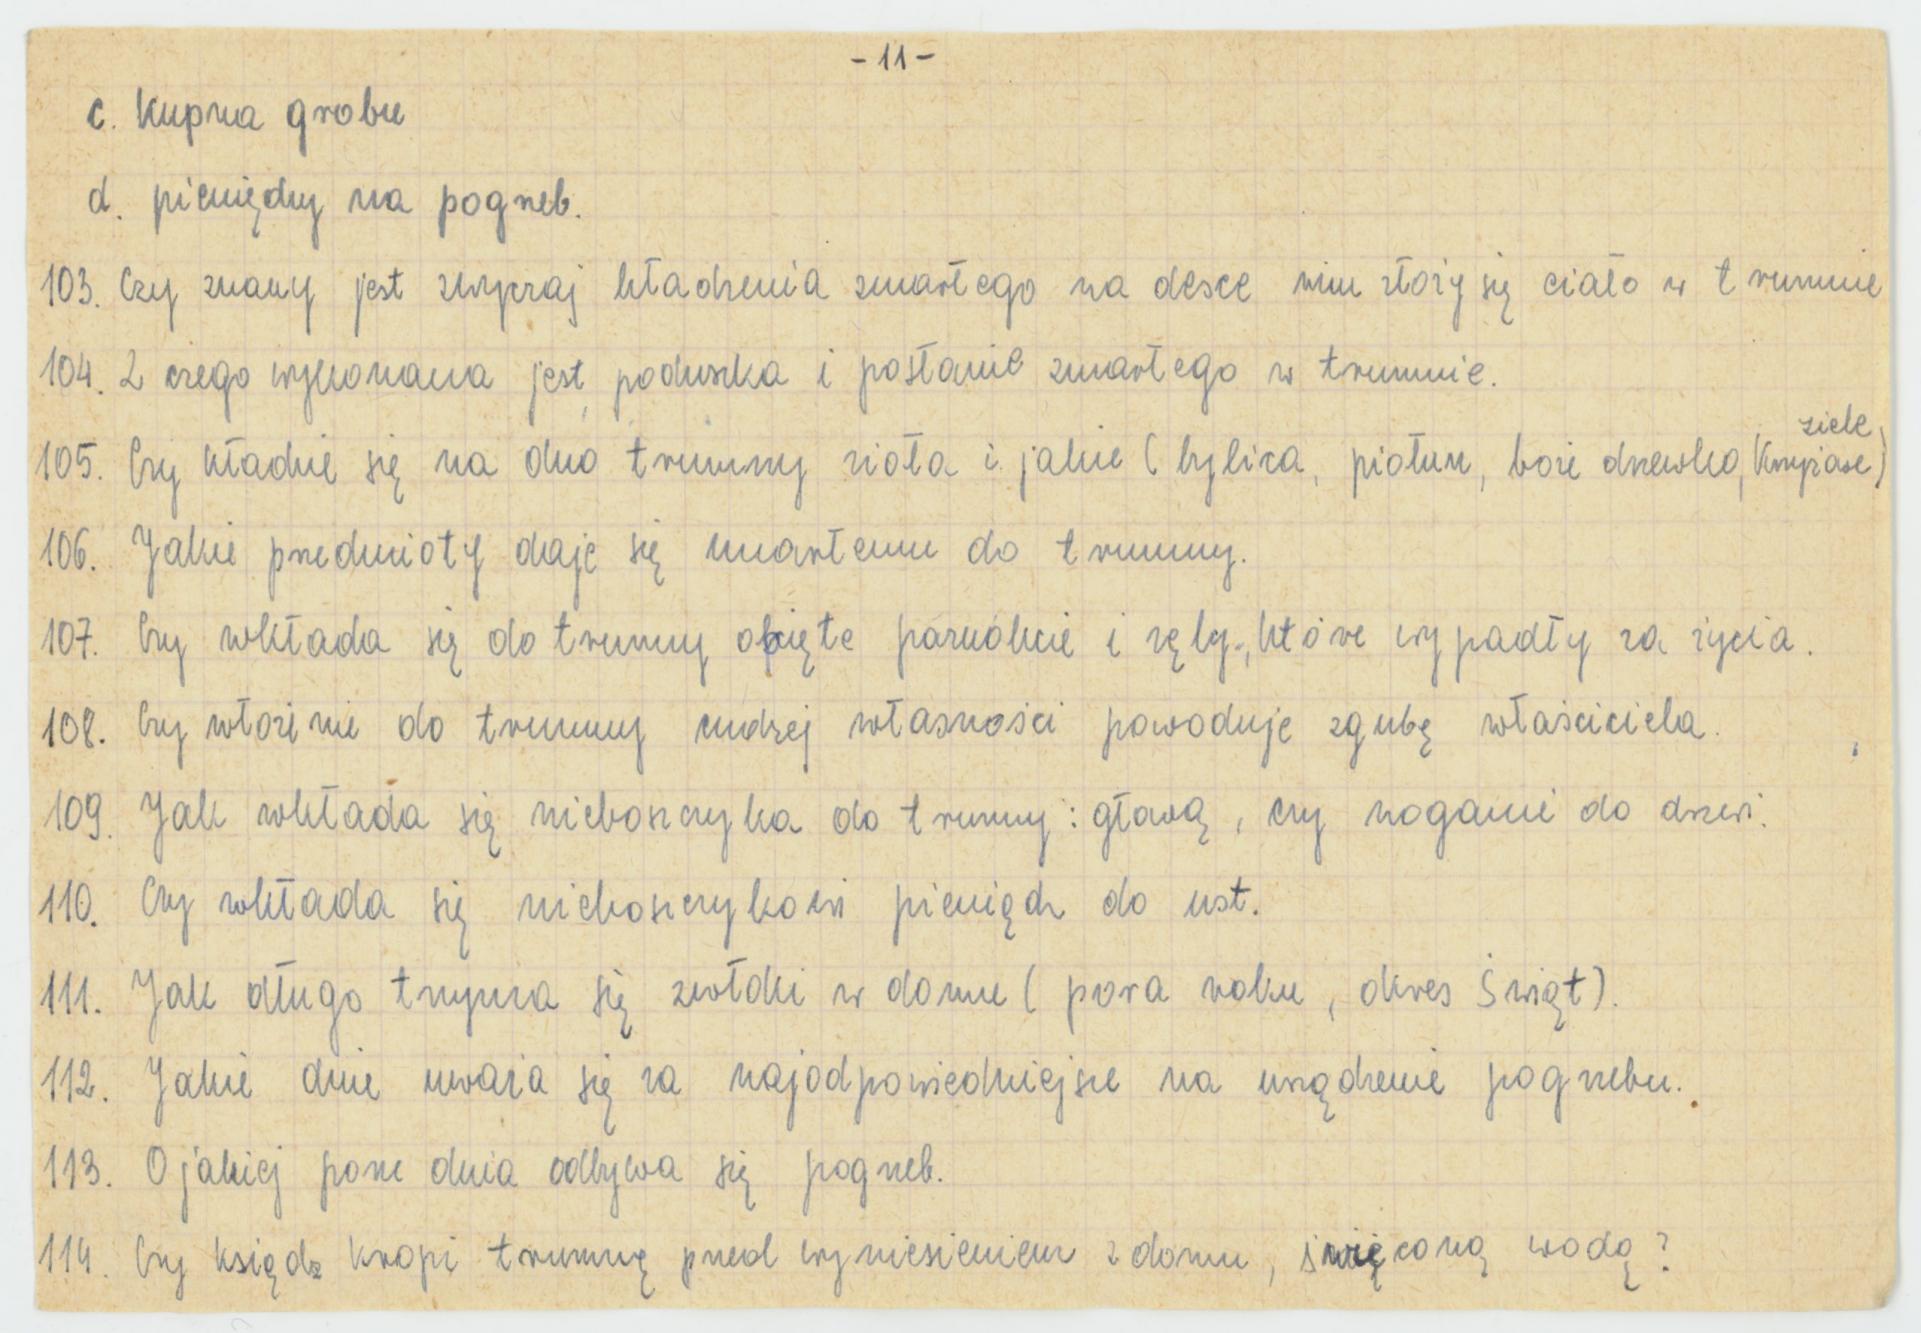 - 11 -
c. kupna grobu
d. pieniędzy na pogrzeb.
103. Czy znany jest zwyczaj kładzenia zmarłego na desce nim złoży się ciało w trumnie
104. Z czego wykonana jest poduszka i posłanie zmarłego w trumnie.
ziele
105. Czy kładzie się na dno trumny zioła i jakie (bylica, piołun, boże drzewko, krzyżowe)
106. Jakie przedmioty daje się zmarłemu do trumny.
107. Czy wkłada się do trumny obcięte paznokcie i zęby, które wypadły za życia.
108. Czy włożenie do trumny cudzej własności powoduje zgubę właściciela.
109. Jak wkłada się nieboszczyka do trumny: głową, czy nogami do drzwi.
110. Czy wkłada się nieboszczykowi pieniądz do ust.
111. Jak długo trzyma się zwłoki w domu (pora roku, okres Świąt).
112. Jakie dnie uważa się za najodpowiedniejsze na urządzenie pogrzebu.
113. O jakiej porze dnia odbywa się pogrzeb.
114. Czy ksiądz kropi trumnę przed wyniesieniem z domu, święconą wodą?